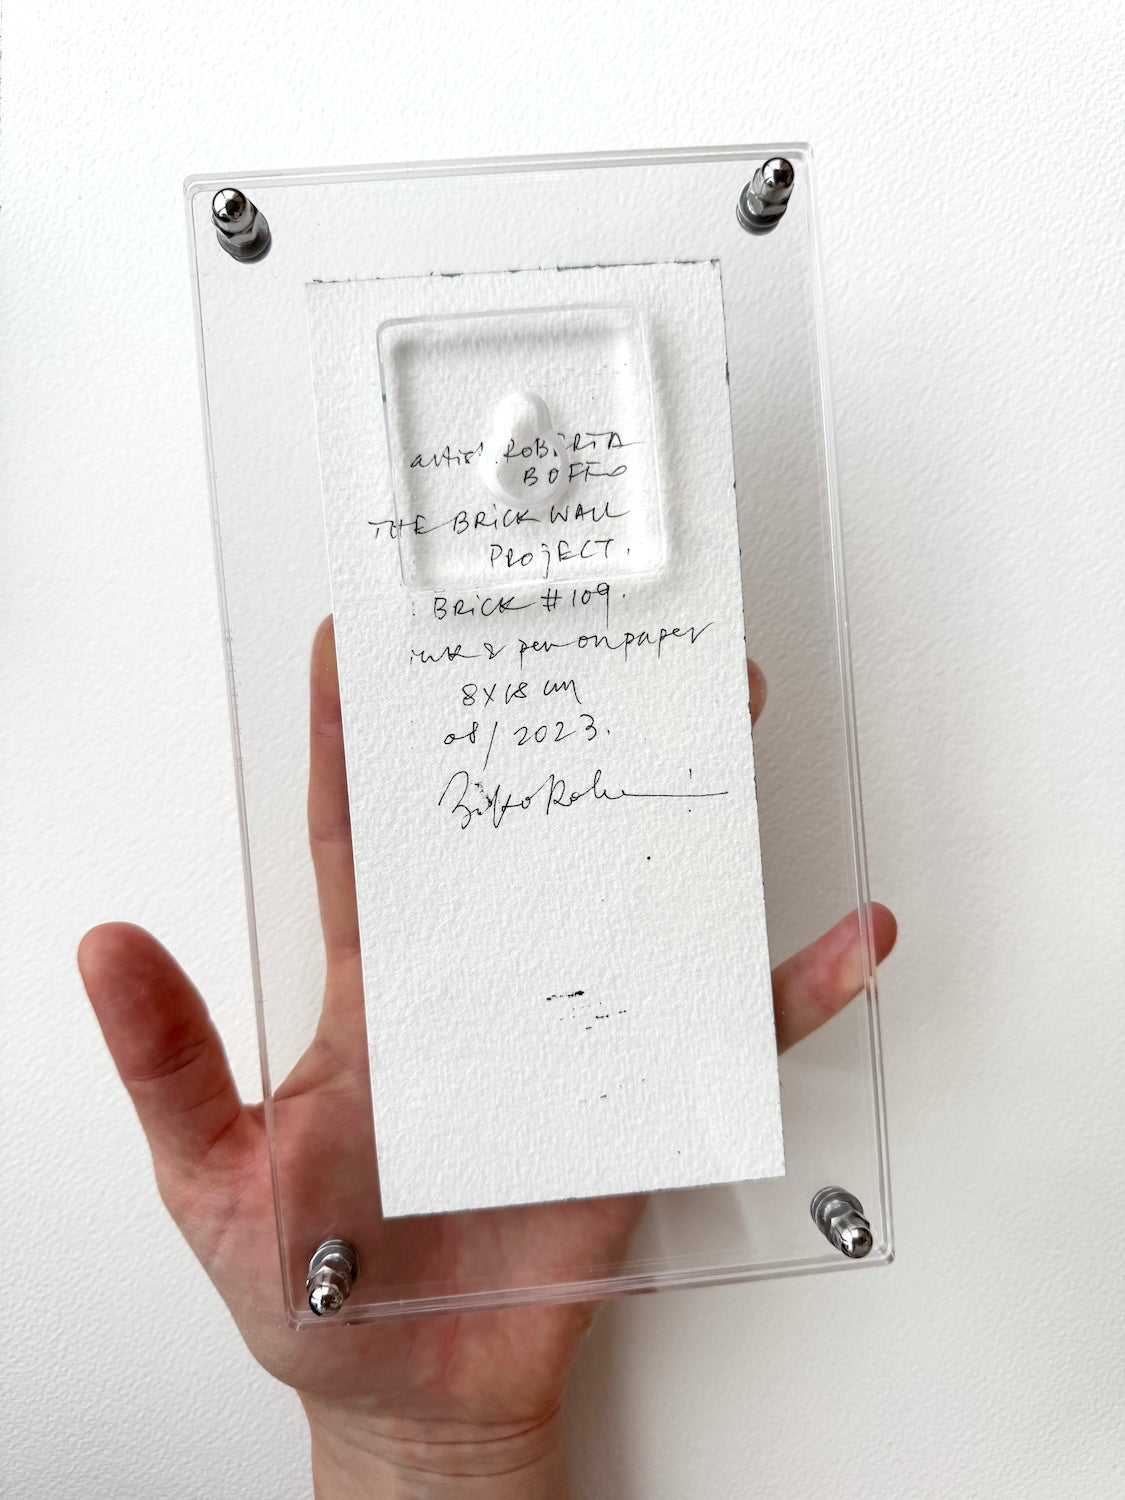 artist ROBERTA
BOFFO
THE BRICK WALL
PROJECT.
BRICK #109.
ink & pen on paper
8x18 cm
08/2023.